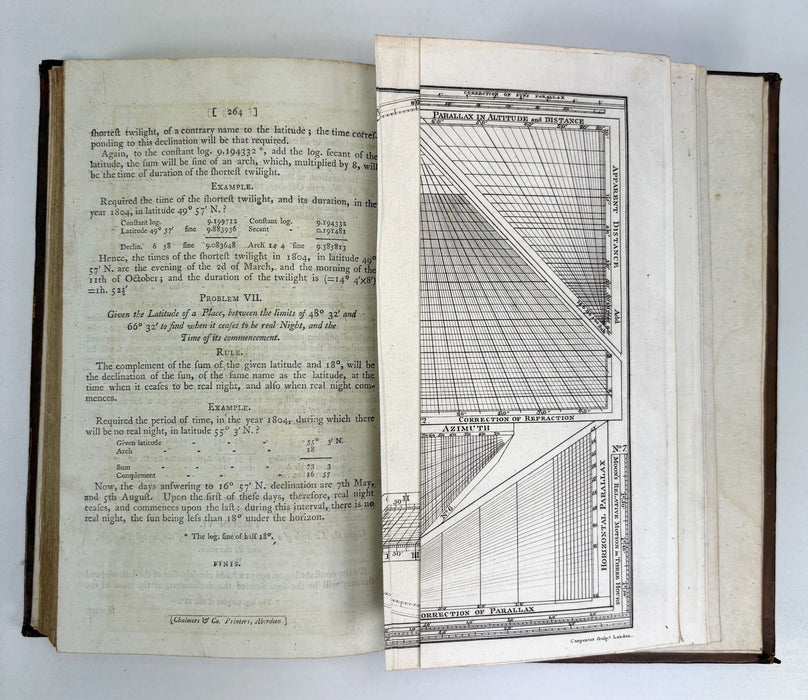 [ 264 ]
ſhorteſt twilight, of a contrary name to the latitude; the time correſ-
ponding to this declination will be that required.
Again, to the conſtant log. 9.194332 *, add the log. ſecant of the
latitude, the ſum will be ſine of an arch, which, multiplied by 8, will
be the time of duration of the ſhorteſt twilight.
EXAMPLE.
Required the time of the ſhorteſt twilight, and its duration, in the
year 1804, in latitude 49° 57′ N.?
Conſtant log. 9.199712 Conſtant log. 9.194332
Latitude 49° 57′ ſine 9.883936 Secant - 0.191481
Declin. 6 58 ſine 9.083648 Arch 14 4 ſine 9.385813
Hence, the times of the ſhorteſt twilight in 1804, in latitude 49°
57′ N. are the evening of the 2d of March, and the morning of the
11th of October; and the duration of the twilight is (=14° 4′×8′)
=1h. 52½′
PROBLEM VII.
Given the Latitude of a Place, between the limits of 48° 32′ and
66° 32′ to find when it ceaſes to be real Night, and the
Time of its commencement.
RULE.
The complement of the ſum of the given latitude and 18°, will be
the declination of the ſun, of the ſame name as the latitude, at the
time when it ceaſes to be real night, and alſo when real night com-
mences.
EXAMPLE.
Required the period of time, in the year 1804, during which there
will be no real night, in latitude 55° 3′ N.?
Given latitude - - - - 55° 3′ N.
Arch - - - - 18
Sum - - - - 73 3
Complement - - - - 16 57
Now, the days anſwering to 16° 57′ N. declination are 7th May,
and 5th Auguſt. Upon the firſt of theſe days, therefore, real night
ceaſes, and commences upon the laſt: during this interval, there is no
real night, the ſun being leſs than 18° under the horizon.
* The log. ſine of half 18°.
FINIS.
[Chalmers & Co. Printers, Aberdeen.]
CORRECTION OF SUNS PARALLAX
PARALLAX IN ALTITUDE and DISTANCE
APPARENT DISTANCE
Add
CORRECTION OF REFRACTION
AZIMUTH
No. 7.
HORIZONTAL PARALLAX
MOON'S RELATIVE MOTION in THREE HOURS
CORRECTION OF PARALLAX
Carpenter Sculpt. London.